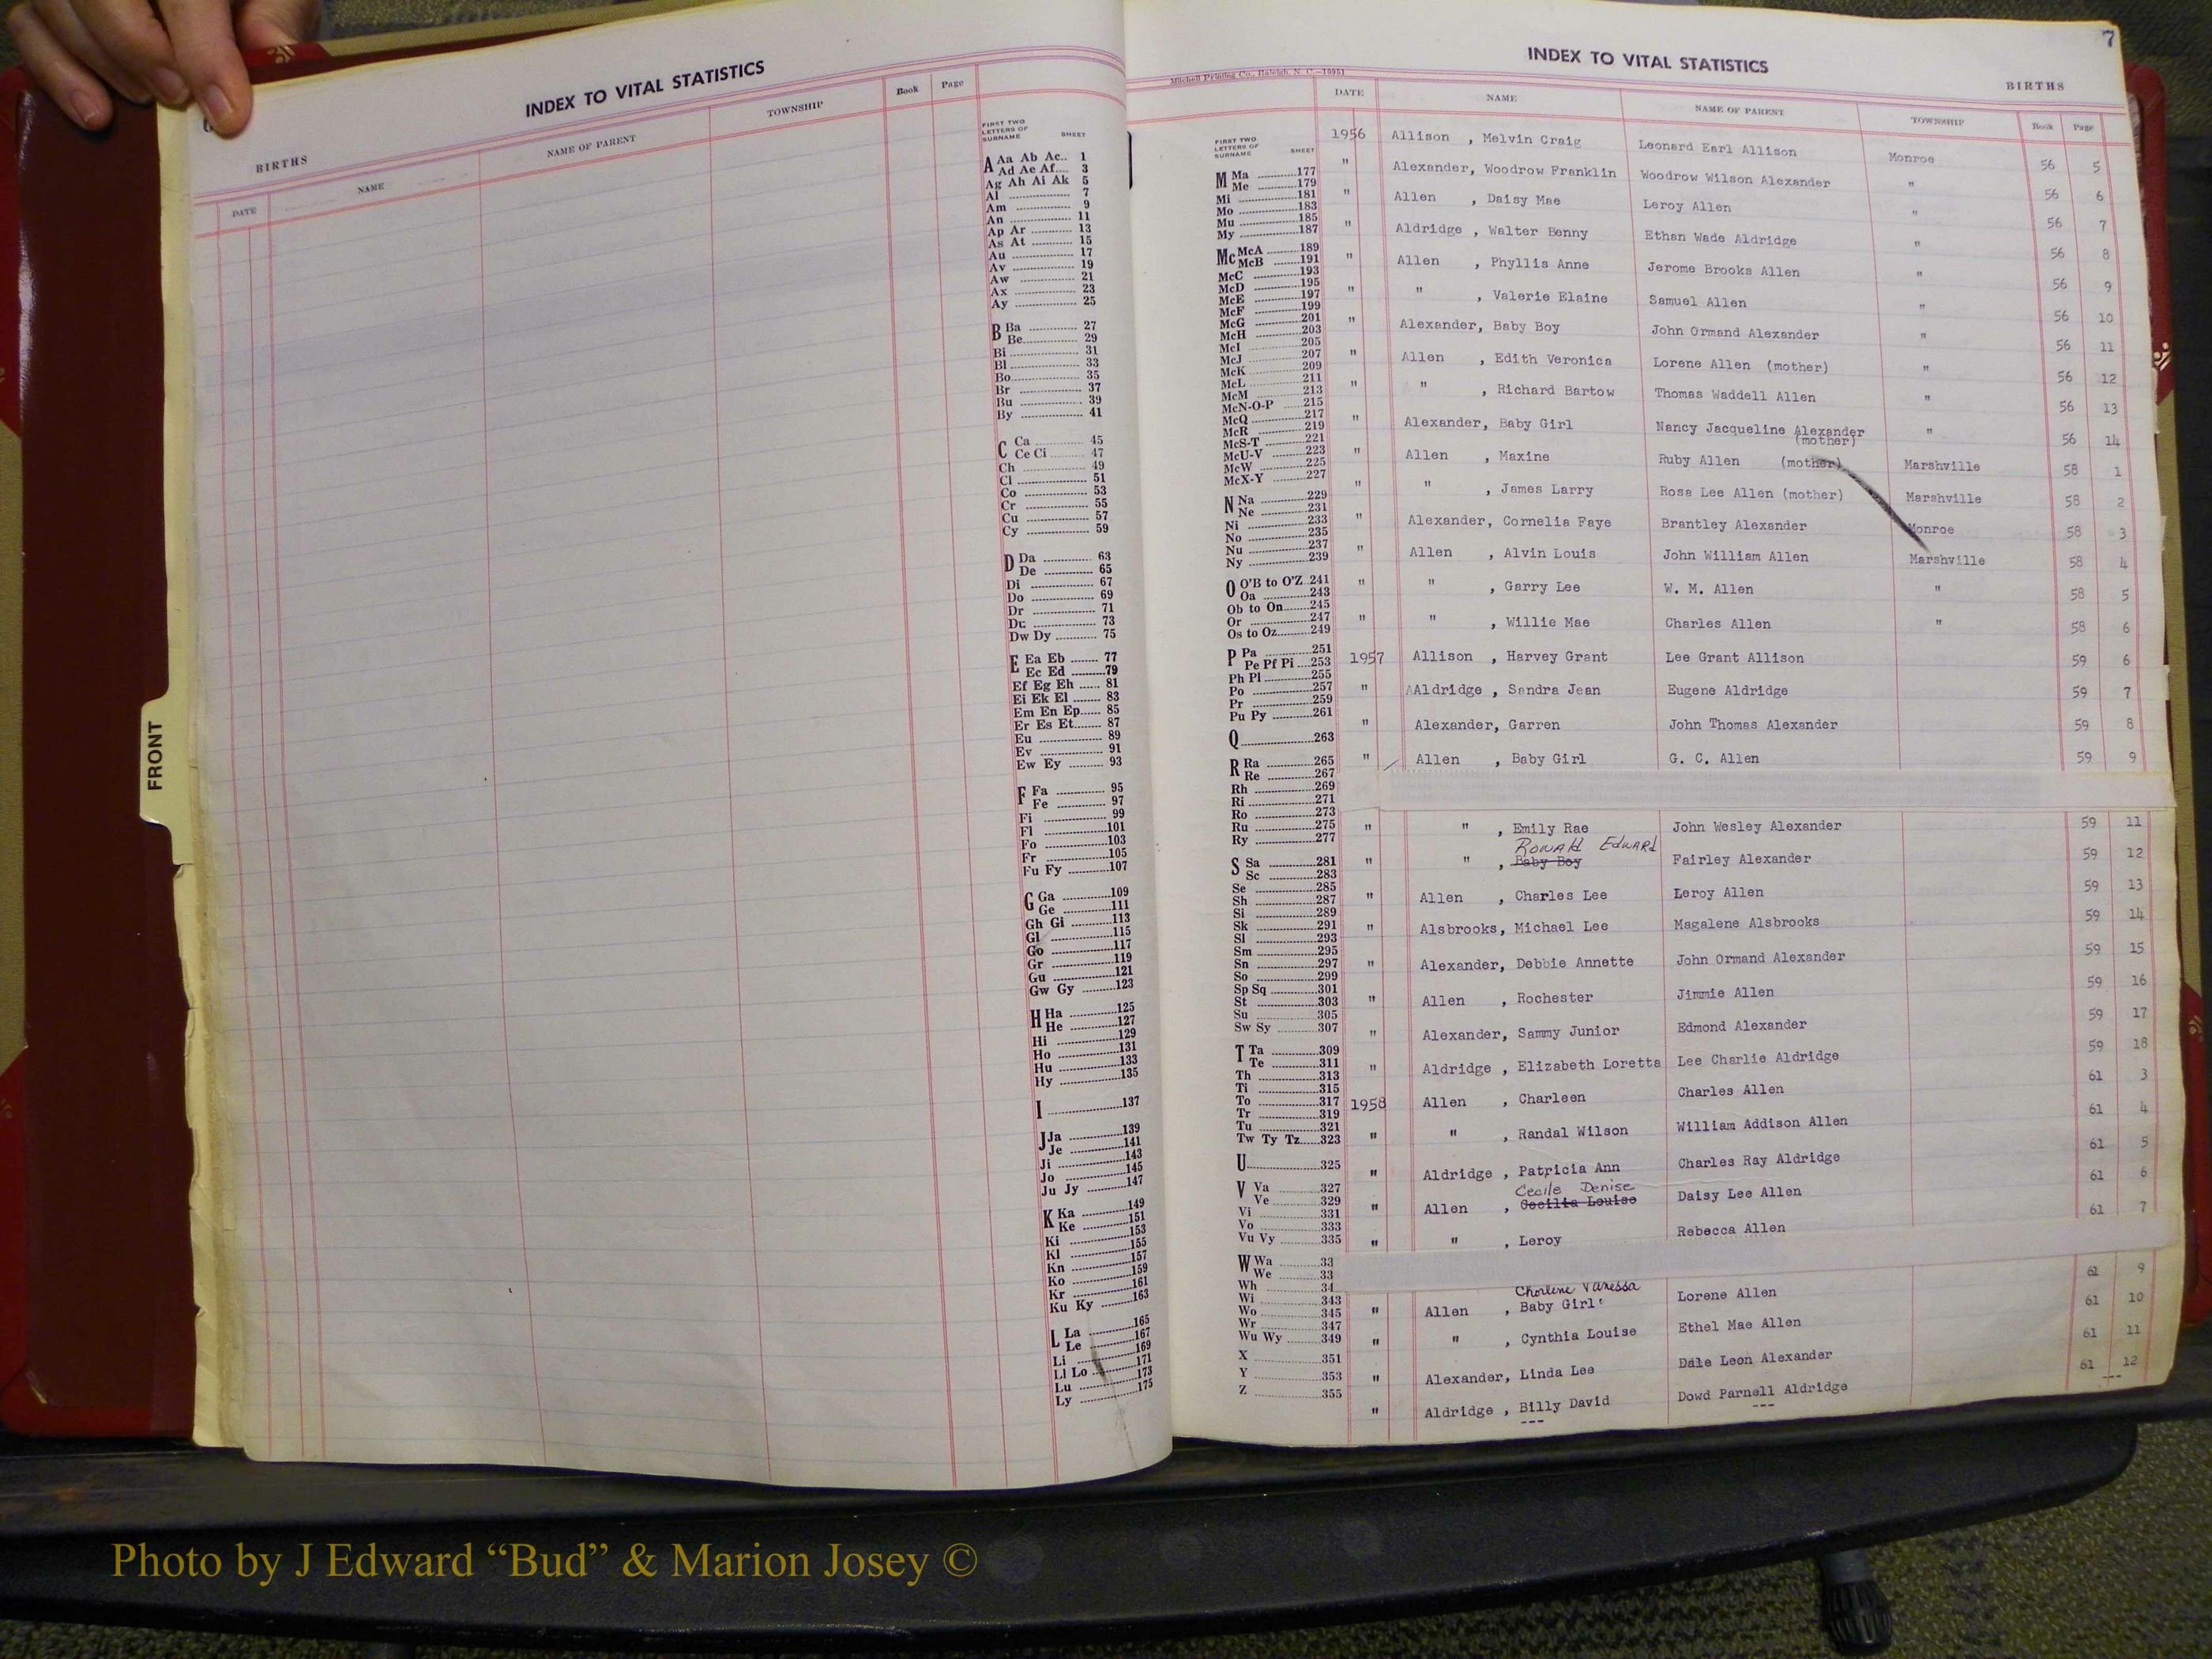 INDEX TO VITAL STATISTICS
BIRTHS
DATE NAME NAME OF PARENT TOWNSHIP Book Page
FIRST TWO LETTERS OF SURNAME SHEET
A Aa Ab Ac.. 1
Ad Ae Af.... 3
Ag Ah Ai Ak 5
Al 7
Am 9
An 11
Ap Ar 13
As At 15
Au 17
Av 19
Aw 21
Ax 23
Ay 25
B Ba 27
Be 29
Bi 31
Bl 33
Bo 35
Br 37
Bu 39
By 41
C Ca 45
Ce Ci 47
Ch 49
Cl 51
Co 53
Cr 55
Cu 57
Cy 59
D Da 63
De 65
Di 67
Do 69
Dr 71
Du 73
Dw Dy 75
E Ea Eb 77
Ec Ed 79
Ef Eg Eh 81
Ei Ek El 83
Em En Ep 85
Er Es Et 87
Eu 89
Ev 91
Ew Ey 93
F Fa 95
Fe 97
Fi 99
Fl 101
Fo 103
Fr 105
Fu Fy 107
G Ga 109
Ge 111
Gh Gi 113
Gl 115
Go 117
Gr 119
Gu 121
Gw Gy 123
H Ha 125
He 127
Hi 129
Ho 131
Hu 133
Hy 135
I 137
J Ja 139
Je 141
Ji 143
Jo 145
Ju Jy 147
K Ka 149
Ke 151
Ki 153
Kl 155
Kn 157
Ko 159
Kr 161
Ku Ky 163
L La 165
Le 167
Li 169
Ll Lo 171
Lu 173
Ly 175
FRONT
7
INDEX TO VITAL STATISTICS
Mitchell Printing Co., Raleigh, N. C.—10951
BIRTHS
DATE NAME NAME OF PARENT TOWNSHIP Book Page
FIRST TWO LETTERS OF SURNAME SHEET
M Ma 177
Me 179
Mi 181
Mo 183
Mu 185
My 187
Mc McA 189
McB 191
McC 193
McD 195
McE 197
McF 199
McG 201
McH 203
McI 205
McJ 207
McK 209
McL 211
McM 213
McN-O-P 215
McQ 217
McR 219
McS-T 221
McU-V 223
McW 225
McX-Y 227
N Na 229
Ne 231
Ni 233
No 235
Nu 237
Ny 239
O O'B to O'Z 241
Oa 243
Ob to On 245
Or 247
Os to Oz 249
P Pa 251
Pe Pf Pi 253
Ph Pl 255
Po 257
Pr 259
Pu Py 261
Q 263
R Ra 265
Re 267
Rh 269
Ri 271
Ro 273
Ru 275
Ry 277
S Sa 281
Sc 283
Se 285
Sh 287
Si 289
Sk 291
Sl 293
Sm 295
Sn 297
So 299
Sp Sq 301
St 303
Su 305
Sw Sy 307
T Ta 309
Te 311
Th 313
Ti 315
To 317
Tr 319
Tu 321
Tw Ty Tz 323
U 325
V Va 327
Ve 329
Vi 331
Vo 333
Vu Vy 335
W Wa 33
We 33
Wh 34
Wi 343
Wo 345
Wr 347
Wu Wy 349
X 351
Y 353
Z 355
1956 Allison , Melvin Craig Leonard Earl Allison Monroe 56 5
" Alexander, Woodrow Franklin Woodrow Wilson Alexander " 56 6
" Allen , Daisy Mae Leroy Allen " 56 7
" Aldridge , Walter Benny Ethan Wade Aldridge " 56 8
" Allen , Phyllis Anne Jerome Brooks Allen " 56 9
" " , Valerie Elaine Samuel Allen " 56 10
" Alexander, Baby Boy John Ormand Alexander " 56 11
" Allen , Edith Veronica Lorene Allen (mother) " 56 12
" " , Richard Bartow Thomas Waddell Allen " 56 13
" Alexander, Baby Girl Nancy Jacqueline Alexander (mother) " 56 14
" Allen , Maxine Ruby Allen (mother) Marshville 58 1
" " , James Larry Rosa Lee Allen (mother) Marshville 58 2
" Alexander, Cornelia Faye Brantley Alexander Monroe 58 3
" Allen , Alvin Louis John William Allen Marshville 58 4
" " , Garry Lee W. M. Allen " 58 5
" " , Willie Mae Charles Allen " 58 6
1957 Allison , Harvey Grant Lee Grant Allison 59 6
" AAldridge , Sandra Jean Eugene Aldridge 59 7
" Alexander, Garren John Thomas Alexander 59 8
" Allen , Baby Girl G. C. Allen 59 9
" " , Emily Rae John Wesley Alexander 59 11
Ronald Edward
" " , Baby Boy Fairley Alexander 59 12
" Allen , Charles Lee Leroy Allen 59 13
" Alsbrooks, Michael Lee Magalene Alsbrooks 59 14
" Alexander, Debbie Annette John Ormand Alexander 59 15
" Allen , Rochester Jimmie Allen 59 16
" Alexander, Sammy Junior Edmond Alexander 59 17
" Aldridge , Elizabeth Loretta Lee Charlie Aldridge 59 18
1958 Allen , Charleen Charles Allen 61 3
" " , Randal Wilson William Addison Allen 61 4
" Aldridge , Patricia Ann Charles Ray Aldridge 61 5
Cecile Denise
" Allen , Cecilia Louise Daisy Lee Allen 61 6
" " , Leroy Rebecca Allen 61 7
Charlene Vanessa
" Allen , Baby Girl Lorene Allen 61 9
" " , Cynthia Louise Ethel Mae Allen 61 10
" Alexander, Linda Lee Dale Leon Alexander 61 11
" Aldridge , Billy David Dowd Parnell Aldridge 61 12
--- --- ---
Photo by J Edward “Bud” & Marion Josey ©